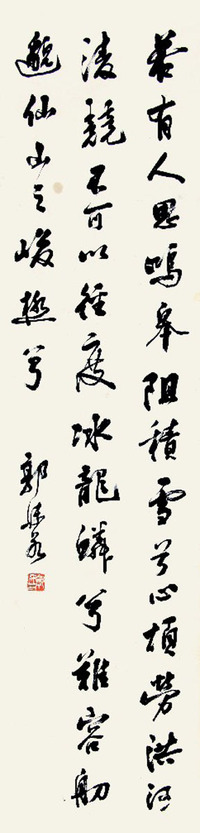 若有人思鳴皋阻積雪兮心煩勞洪河
凌兢不可以徑度冰龍鱗兮難容舠
邈仙山之峻極兮 郭沫若